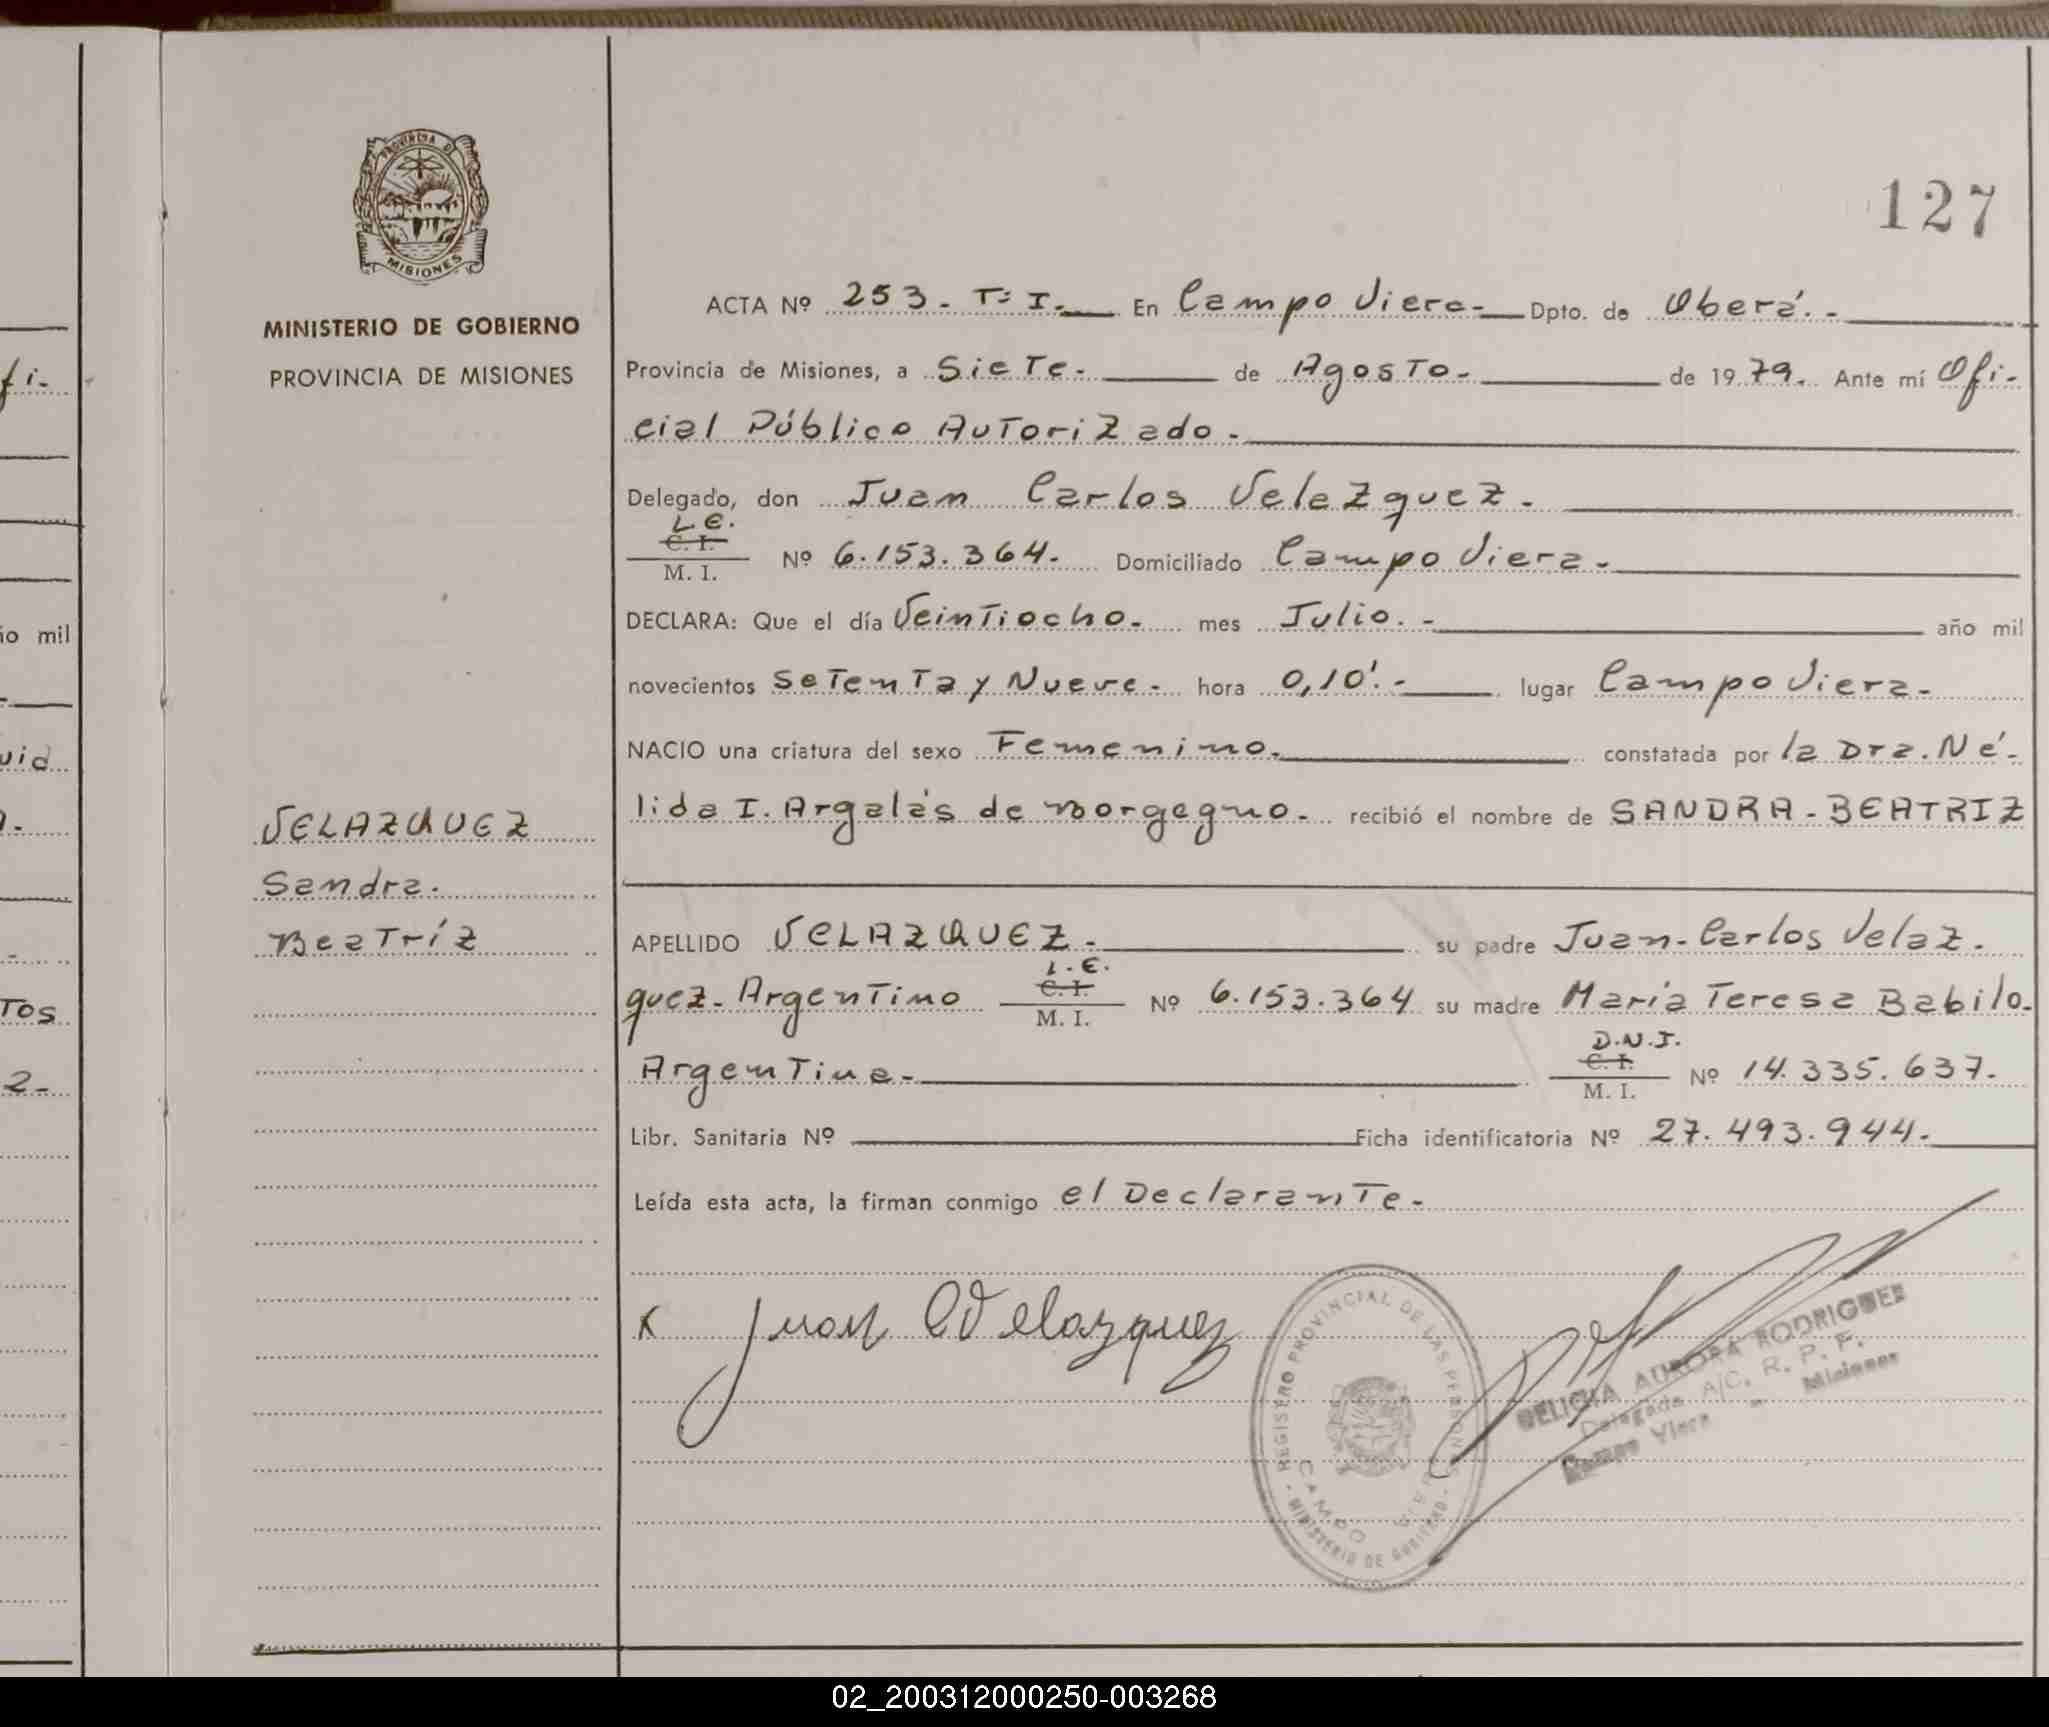 PROVINCIA DE
MISIONES
MINISTERIO DE GOBIERNO
PROVINCIA DE MISIONES
127
ACTA Nº 253. Tº I. En Campo Viera. Dpto. de Oberá.
Provincia de Misiones, a Siete. de Agosto. de 1979. Ante mí Ofi-
cial Público Autorizado.
Delegado, don Juan Carlos Velazquez.
L.E.
C. I.
M. I. Nº 6.153.364. Domiciliado Campo Viera.
DECLARA: Que el día Veintiocho. mes Julio. año mil
novecientos Setenta y Nueve. hora 0,10'. lugar Campo Viera.
NACIO una criatura del sexo Femenino. constatada por la Dra. Né-
lida I. Argalás de Borgogno. recibió el nombre de SANDRA-BEATRIZ
APELLIDO VELAZQUEZ. su padre Juan-Carlos Velaz-
L.E.
C. I.
quez- Argentino M. I. Nº 6.153.364 su madre María Teresa Babilo-
D.N.I.
C. I.
Argentina. M. I. Nº 14.335.637.
Libr. Sanitaria Nº Ficha identificatoria Nº 27.493.944.
Leída esta acta, la firman conmigo el Declarante.
Juan C Velazquez
REGISTRO PROVINCIAL DE LAS PERSONAS
CAMPO VIERA
MINISTERIO DE GOBIERNO
DELICIA AURORA RODRIGUEZ
Delegada A/C. R. P. F.
Campo Viera - Misiones
VELAZQUEZ
Sandra.
Beatríz
fi.
io mil
uid
Tos
2-
02_200312000250-003268